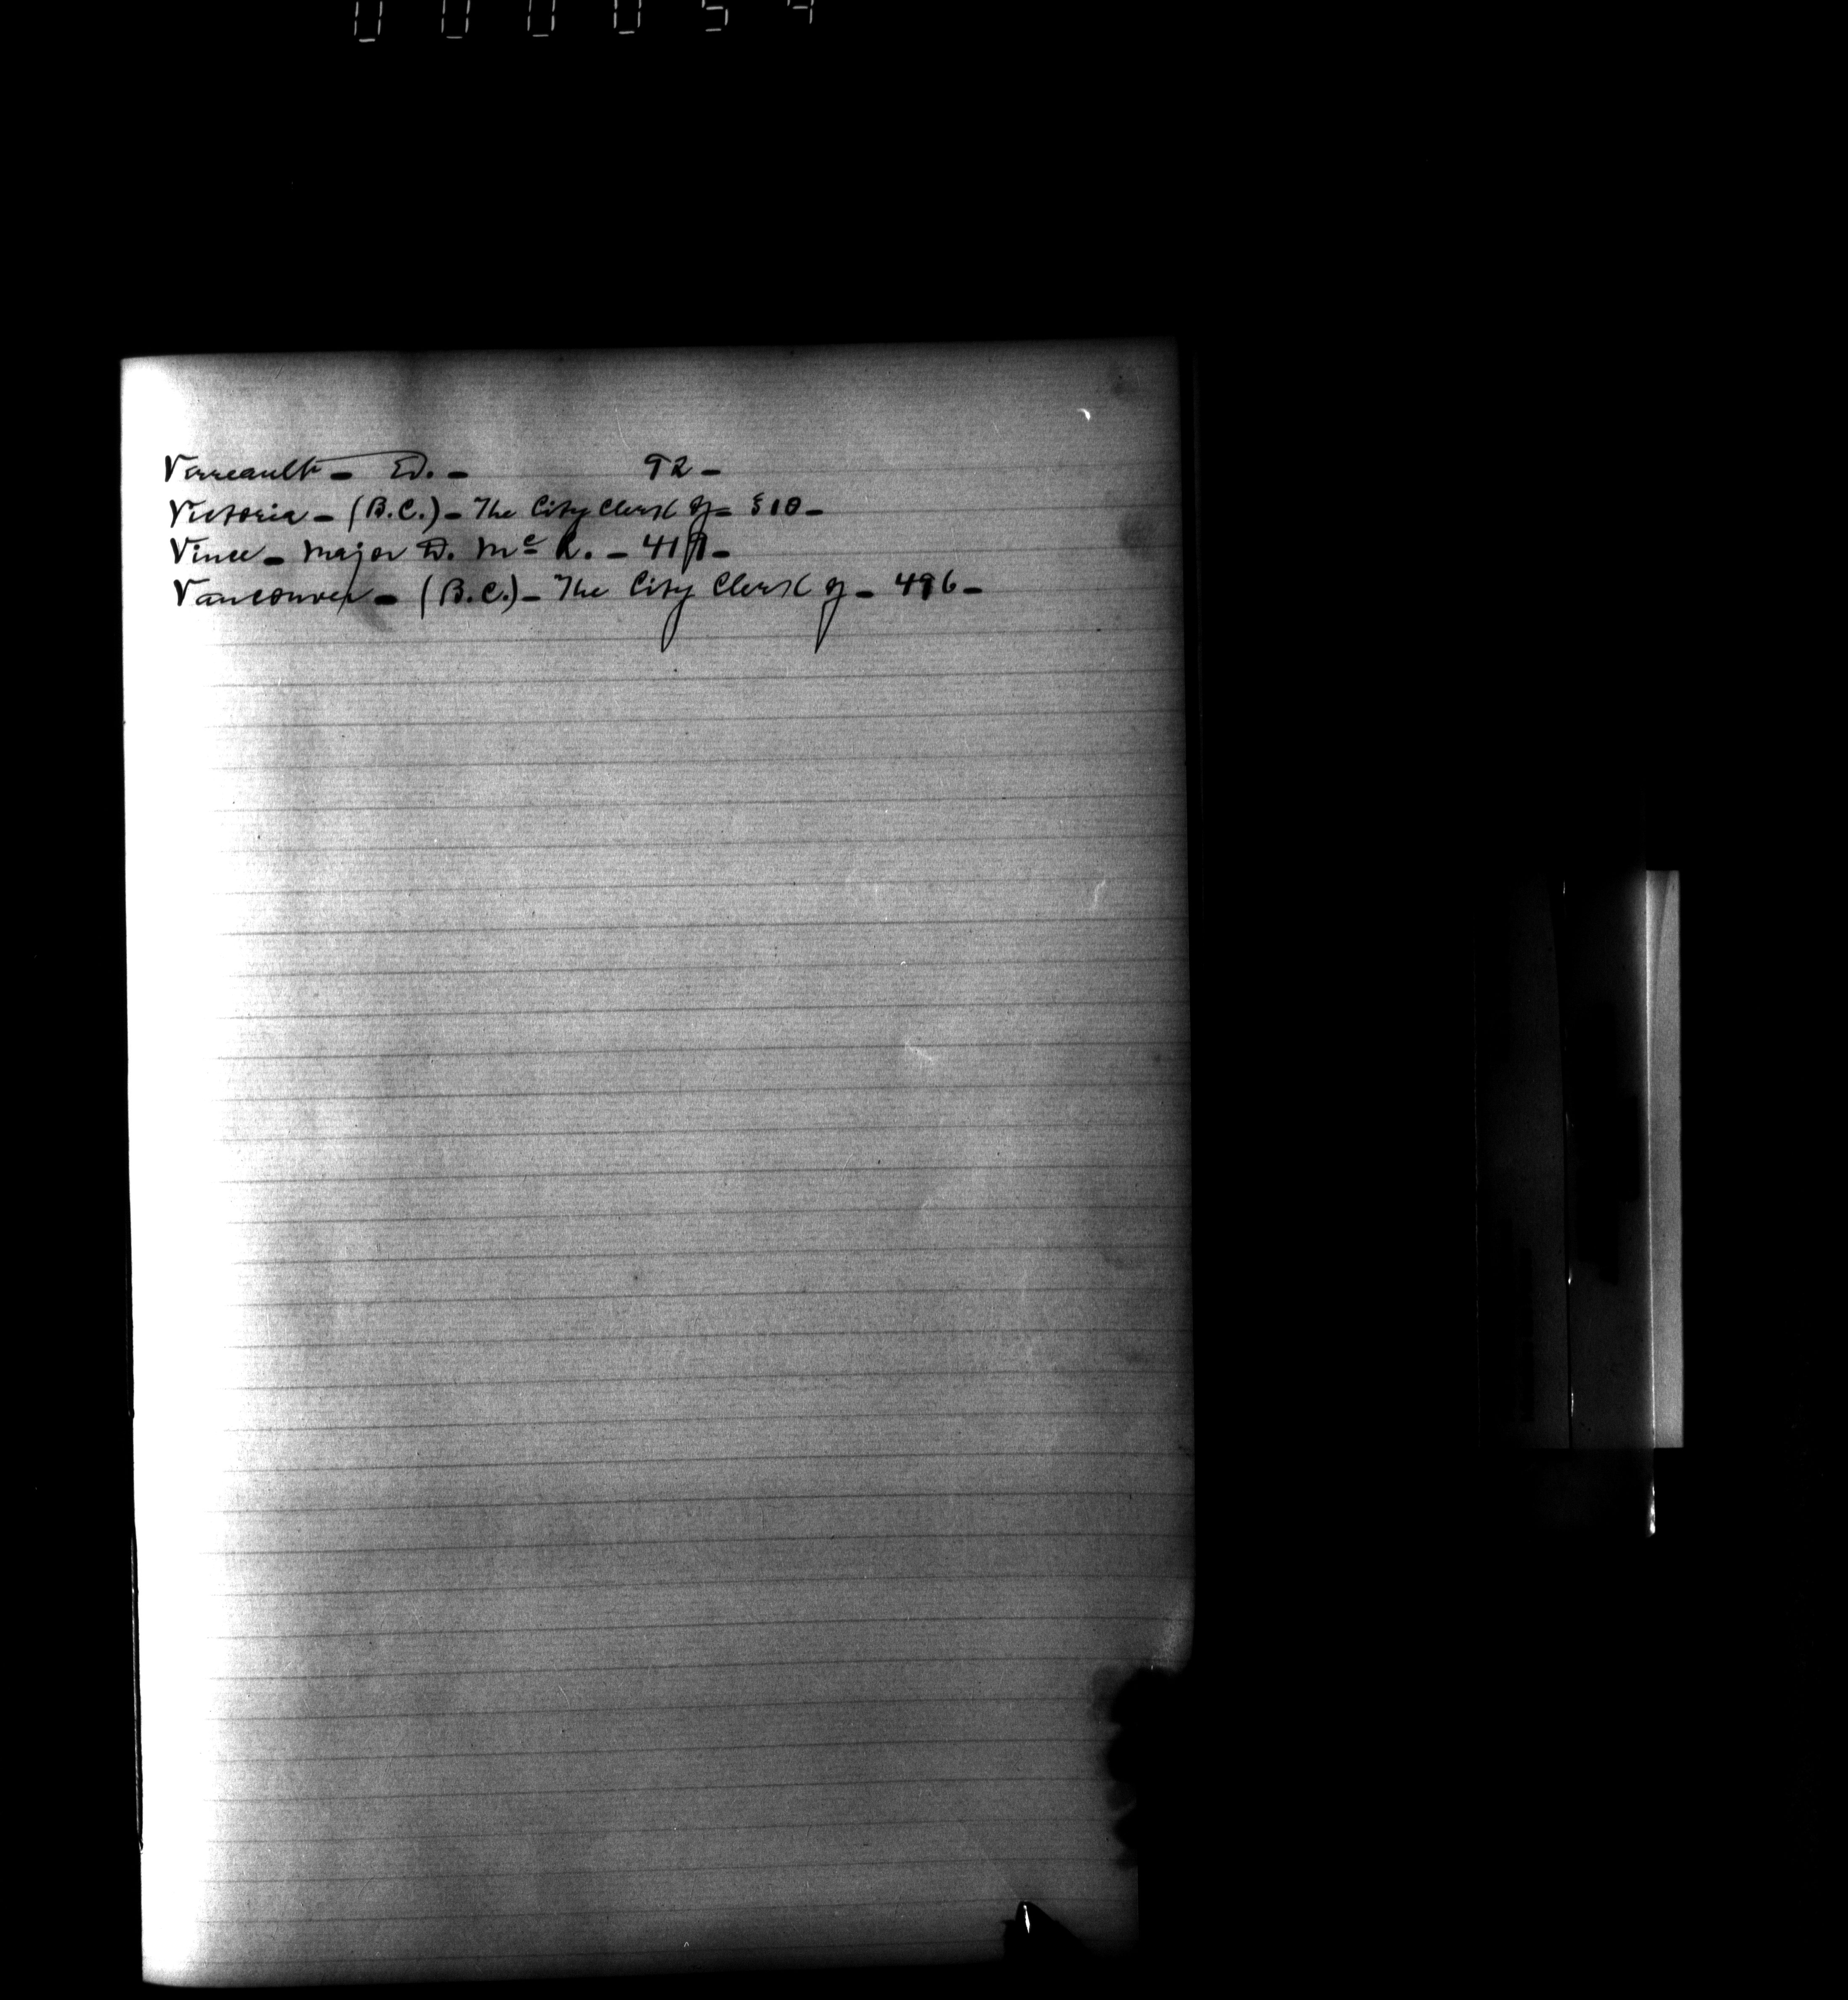 Verreault - Ed. - 92 -
Victoria - (B.C.) - The City Clerk of - 310 -
Vince - Major D. McL. -
Vancouver - (B.C.) - The City Clerk of - 496 -